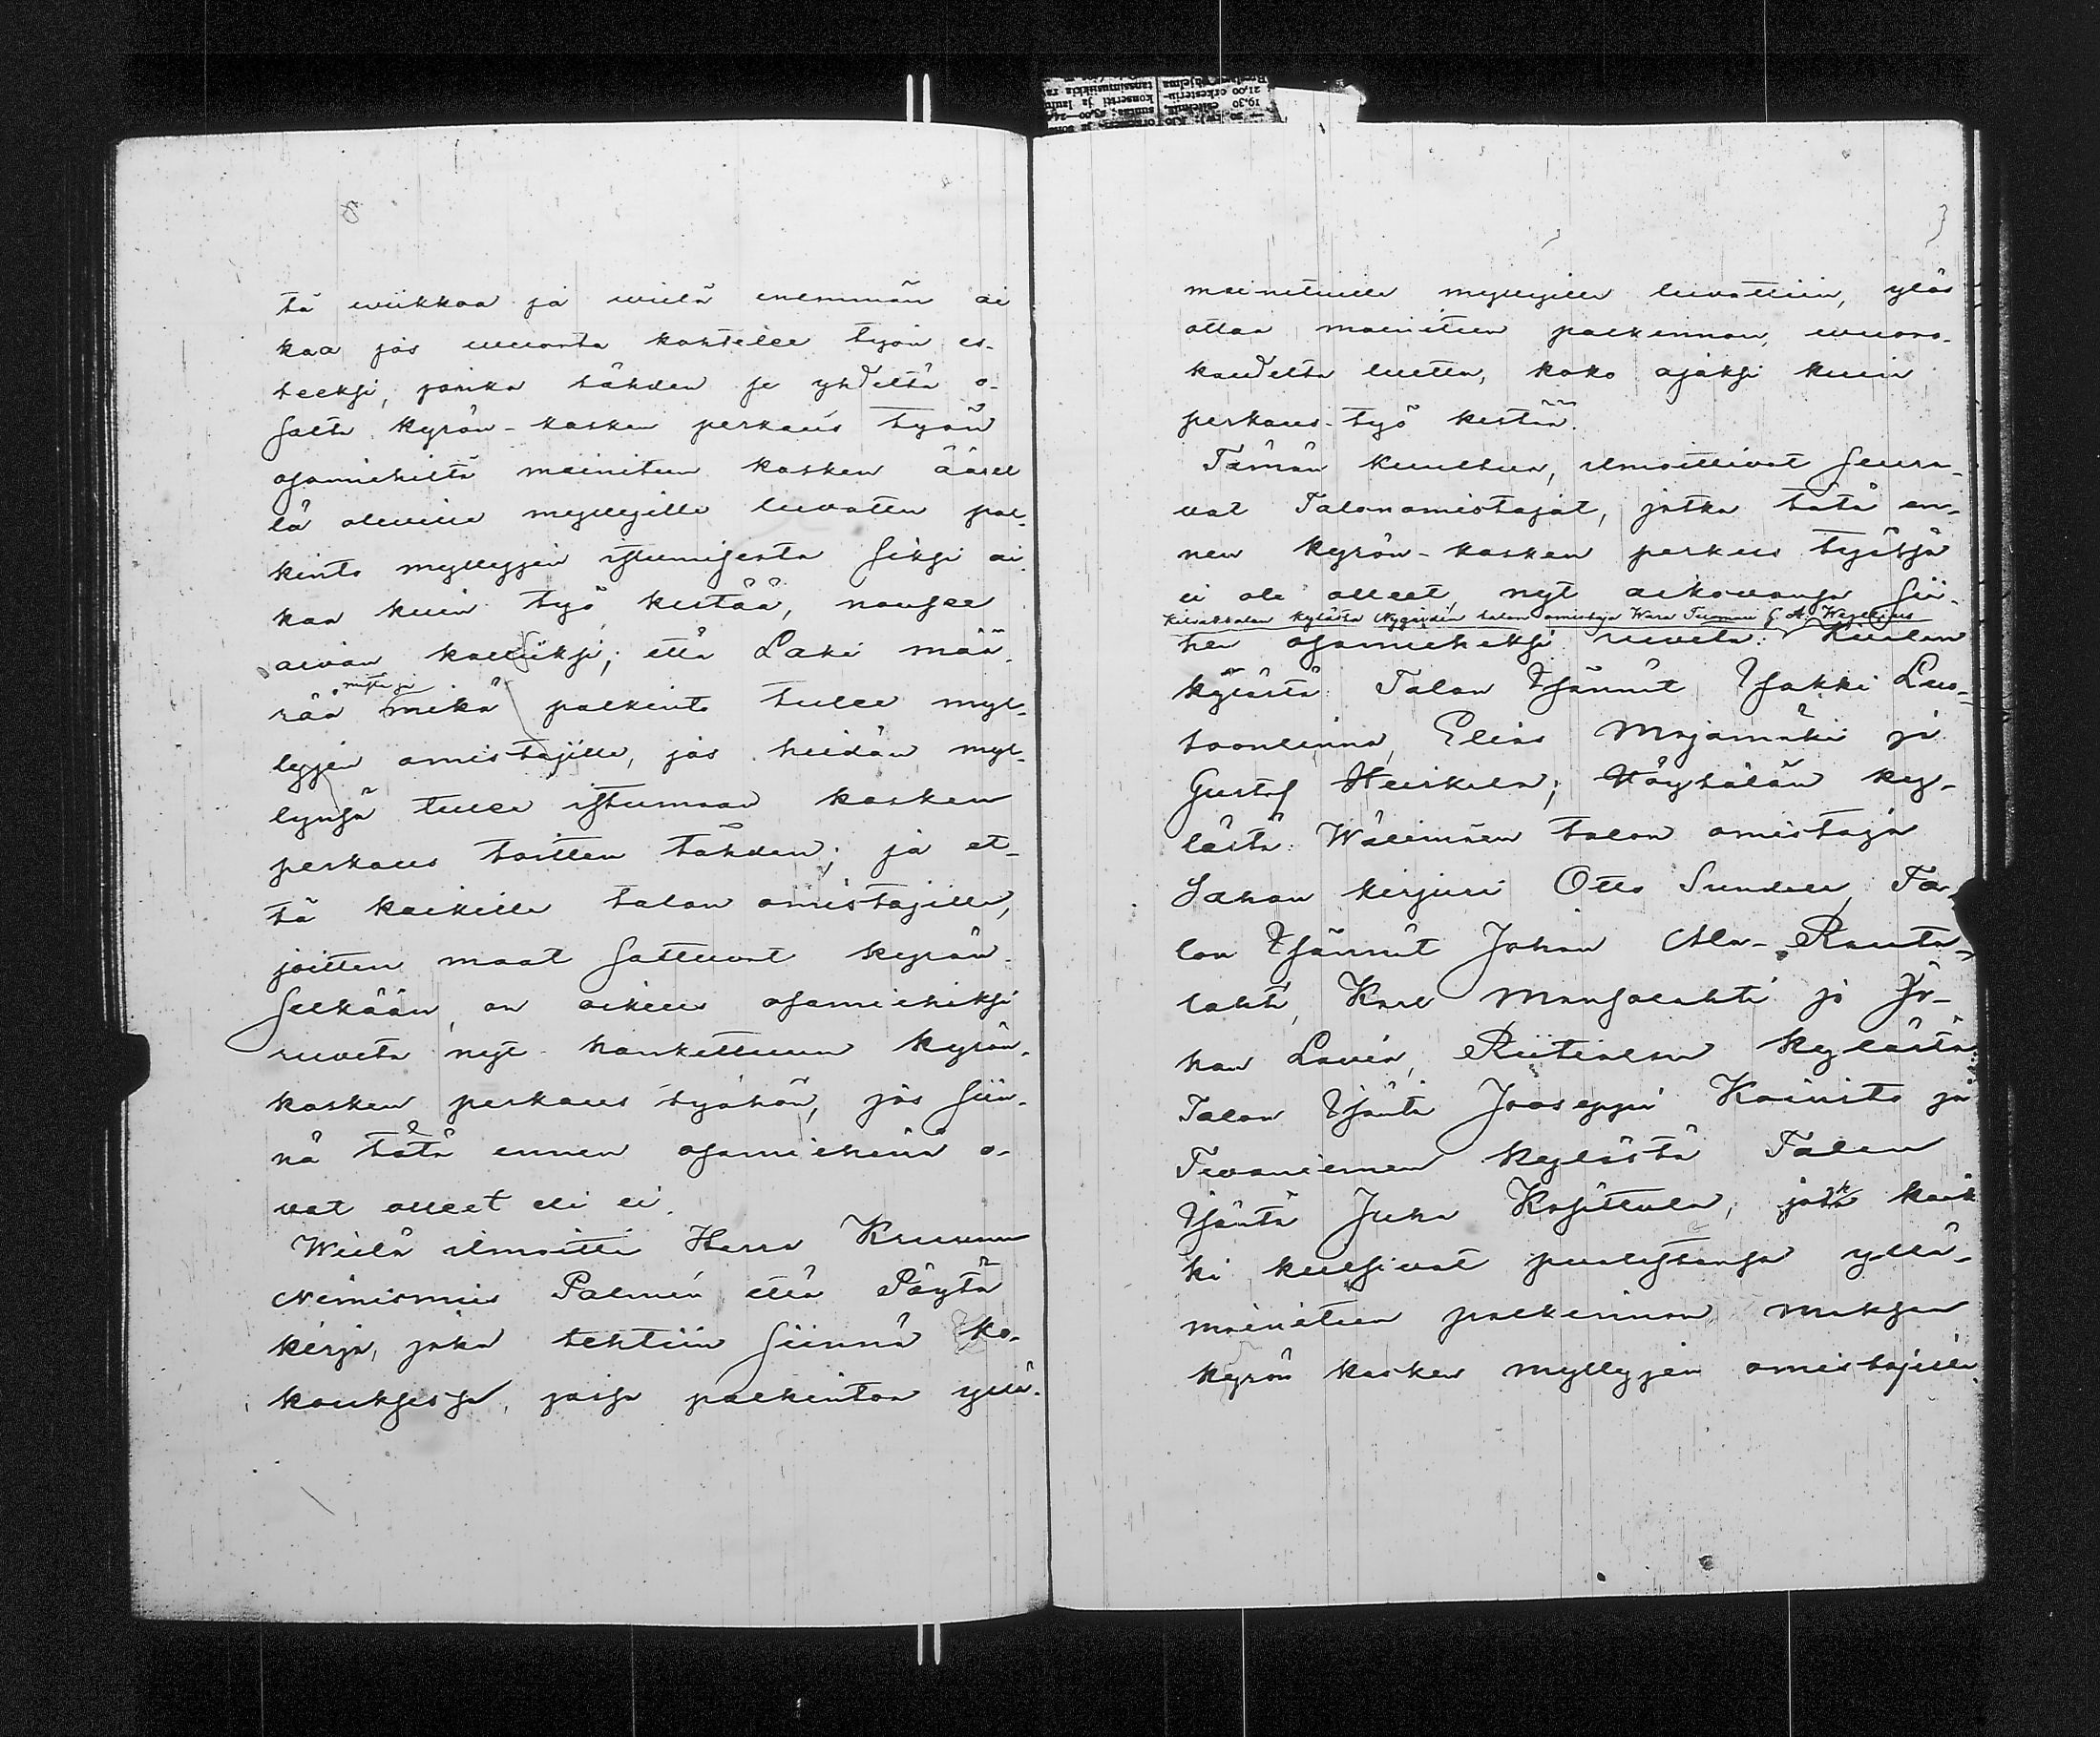 tä wiikkoa ja wielä enemmän ai
kaa jos wuonta kohtelee työn es-
teeksi, jonka tähden ja yhdeltä o-
salta Kyrön-kosken perkaus työn
osamiehiltä mainitun kosken ääsel
lä oleville myllyille luvattu pal-
kinto myllyjen istumisesta siksi ai-
kaa kuin työ kestää, nousee
aivan kalliiksi; että Laki mää-
rää mikä palkinto tulee myl-
lyjen omistajille, jos heidän myl-
lynsä tulee istumaan kosken
perkaus töitten tähden; ja et-
tä kaikille talon omistajille,
joitten maat sattuvat Kyrön-
selkään, on oikeus osamieheksi
ruveta nyt hankittuun Kyrön-
kosken perkaus työhön, jos siin-
nä tätä ennen osamiehinä o-
vat olleet eli ei.
Wielä ilmoitti Herra Kruunun
Nimismies Palmén että Pöytä
kirja, joka tehtiin siinnä ko-
kouksessa, jossa palkintoa yllä-
mainituille myllyille luvattiin, ylös
ottaa mainitun palkinnon, wuoro-
kaudelta luettu, koko ajaksi kuin
perkaus-työ kestää.
Tämän kuultua, ilmoittivat seura-
vat Talonomistajat, jotka tätä en-
nen Kyrön-kosken perkaus työssä
ei ole olleet, nyt aikovansa sii-
Kilvakkalan kylästä Nygrén'in talon omistaja Wara Tuomari G. A.
hen osamieheksi ruveta: Kuilan
kylästä Talon Isännät Isakki Luo-
toonlinna, Elias Majamäki ja
Gustaf Heiskala; Röyhiölän ky-
lästä Wälimäen talon omistaja
Sahan kirjuri Otto Sundell, Ta-
lon Isännät Johan Ala-Rauta-
lahti, Karl Mansolahti ja Jo-
han Lavia, Riitialan kylästä
Talon Isäntä Jooseppi Koinisto ja
Tevaniemen kylästä Talon
Isäntä Juha Kasittula, jotka kaik
ki kutsivat puolestansa yllä-
mainitun palkinnon maksun
Kyrön kosken myllyjen omistajille.